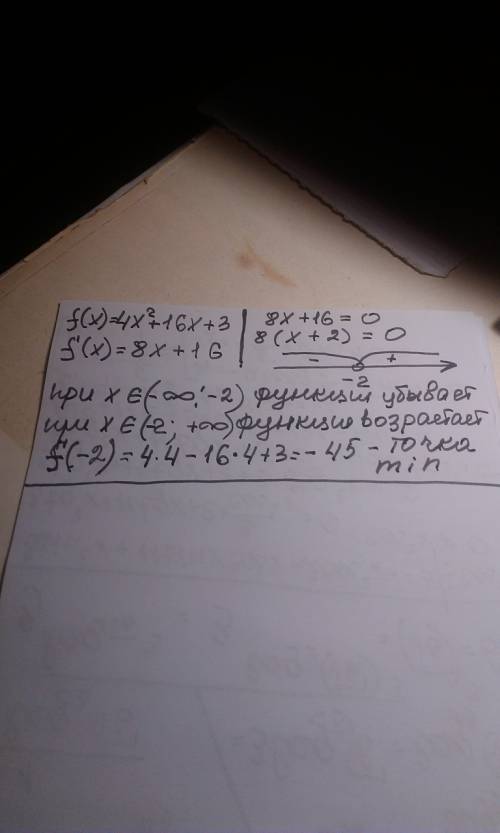 f(x)=4x²+16x+3
f'(x)=8x+16
8x+16=0
8(x+2)=0
- +
-2
при x∈(-∞;-2) функция убывает
при x∈(-2; +∞) функция возрастает
f(-2)=4·4-16·4+3=-45 - точка
min